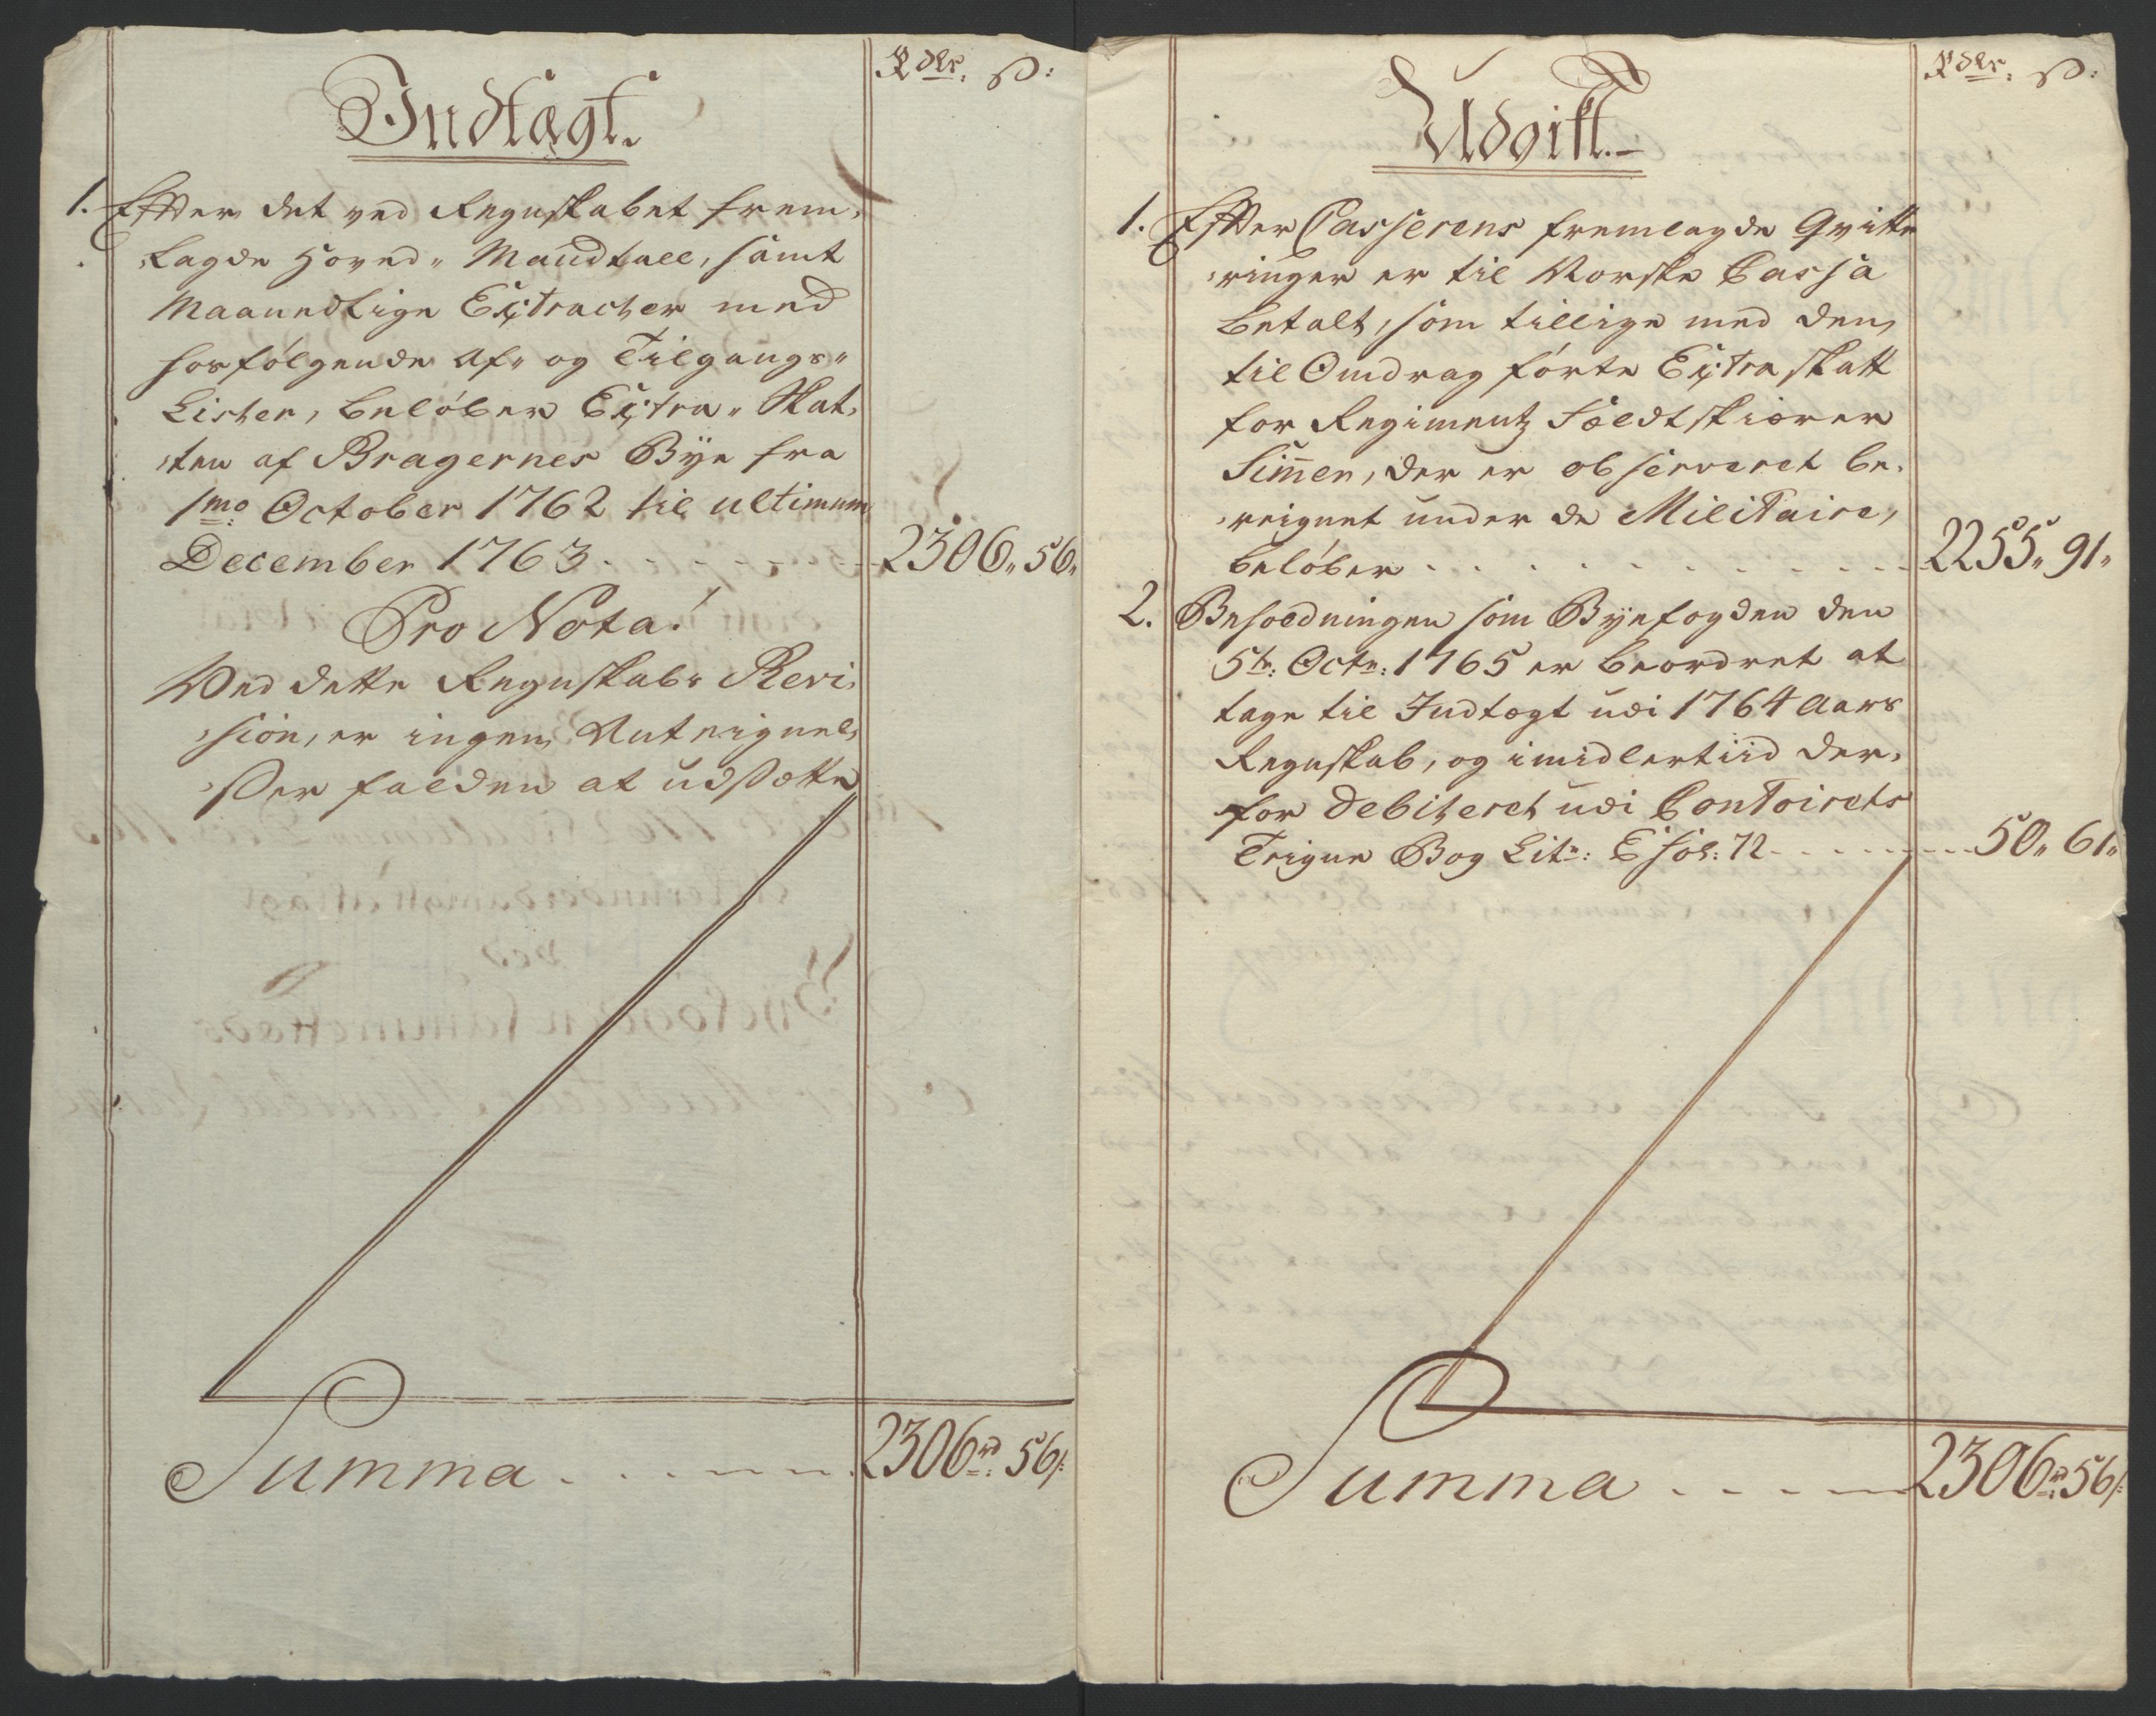 Rdlr. ß:
Indtægt.
1. Efter det ved Regnskabet frem-
lagde Hoved- Mandtall, samt
Maanedtlige Extracter med
hosfølgende Af- og Tilgangs-
Lister, beløber Extra- Skat-
ten af Bragernes Bÿe fra
1mo October 1762 til ultimum
December 1763 - - - - - - - 2306„ 56„
Pro Nota!
Ved dette Regnskabs Revi-
sion, er ingen Antegnel-
ßer falden at udßætte
Summa - - - - - - 2306rd 56ß
Rdlr. ß:
Udgift.
1. Efter Casserens fremlagde Qvitte
ringer er til Norske Cassa
betalt, som tillige med den,
til Omdrag førte Extra skatt
for Regimentz Feldtskiærer
Simen, der er observeret be-
reignet under de Militaire,
beløber - - - - - - - - - - 2255„ 91„
2. Besoldningen som Bÿefogden den
5te: Octr: 1765 er beordret at
tage til Indtægt udi 1764 Aars
Regnskab, og imidlertiid der-
for debiteret udi Contoirets
Teigne Bog Litr: E fol: 72 - - - - - - 50„ 61„
Summa - - - - - 2306rd 56ß